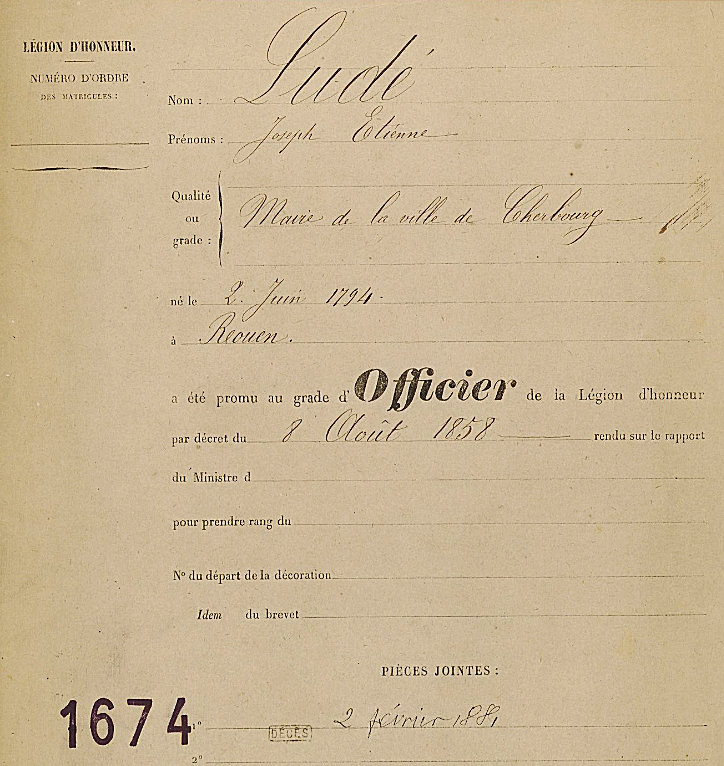 LÉGION D'HONNEUR.
NUMÉRO D'ORDRE
DES MATRICULES :
Nom : Ludé
Prénoms : Joseph Etienne
Qualité
ou
grade :
Maire de la ville de Cherbourg
né le 2. Juin 1794.
à Reouen.
a été promu au grade d'Officier de la Légion d'honneur
par décret du 8 Août 1858 rendu sur le rapport
du Ministre d
pour prendre rang du
N° du départ de la décoration
Idem du brevet
PIÈCES JOINTES :
1674
1° DÉCÈS 2 février 1881
2°